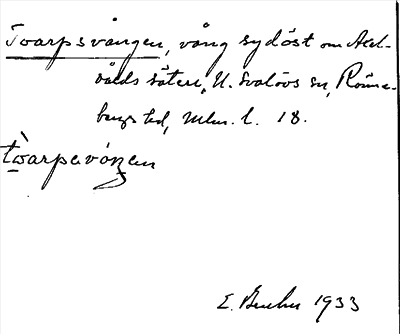 Tvarpsvången, vång sydöst om Axel-
vålds säteri, N. Svalövs sn, Rönne-
bergs hd, Mlm. l. 18.
tvarpsvångan
1933